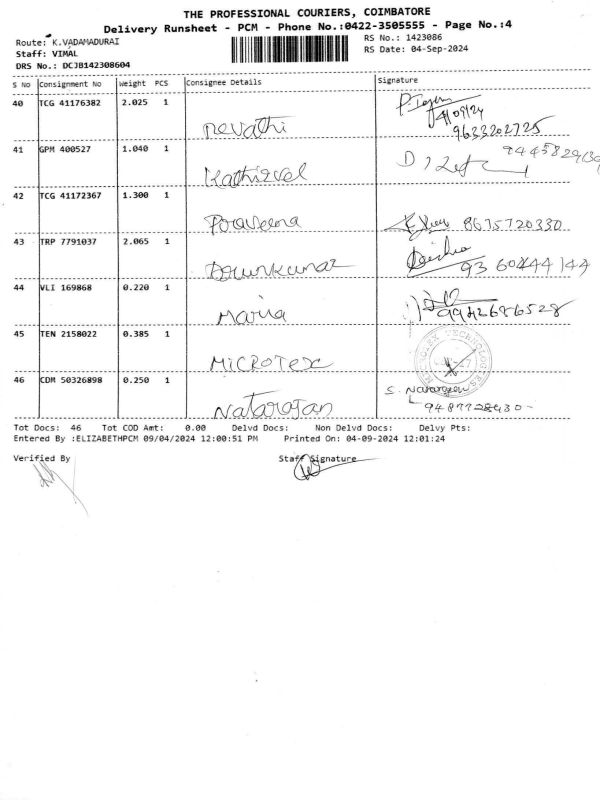 THE PROFESSIONAL COURIERS, COIMBATORE
Delivery Runsheet - PCM - Phone No.:0422-3505555 - Page No.:4
Route: K.VADAMADURAI
Staff: VIMAL
DRS No.: DCJB142308604
RS No.: 1423086
RS Date: 04-Sep-2024
S No Consignment No Weight PCS Consignee Details Signature
40 TCG 41176382 2.025 1
Revathi
4/09/24
9633202725
41 GPM 400527 1.040 1
Kathirvel
42 TCG 41172367 1.300 1
Praveena 8675720330
43 TRP 7791037 2.065 1
Arunkumar 93 60444 144
44 VLI 169868 0.220 1
Maria 9942686528
45 TEN 2158022 0.385 1
MICROTEX
46 CDM 50326898 0.250 1
Natarajan
S. Natarajan
Tot Docs: 46 Tot COD Amt: 0.00 Delvd Docs: Non Delvd Docs: Delvy Pts:
Entered By :ELIZABETHPCM 09/04/2024 12:00:51 PM Printed On: 04-09-2024 12:01:24
Verified By Staff Signature